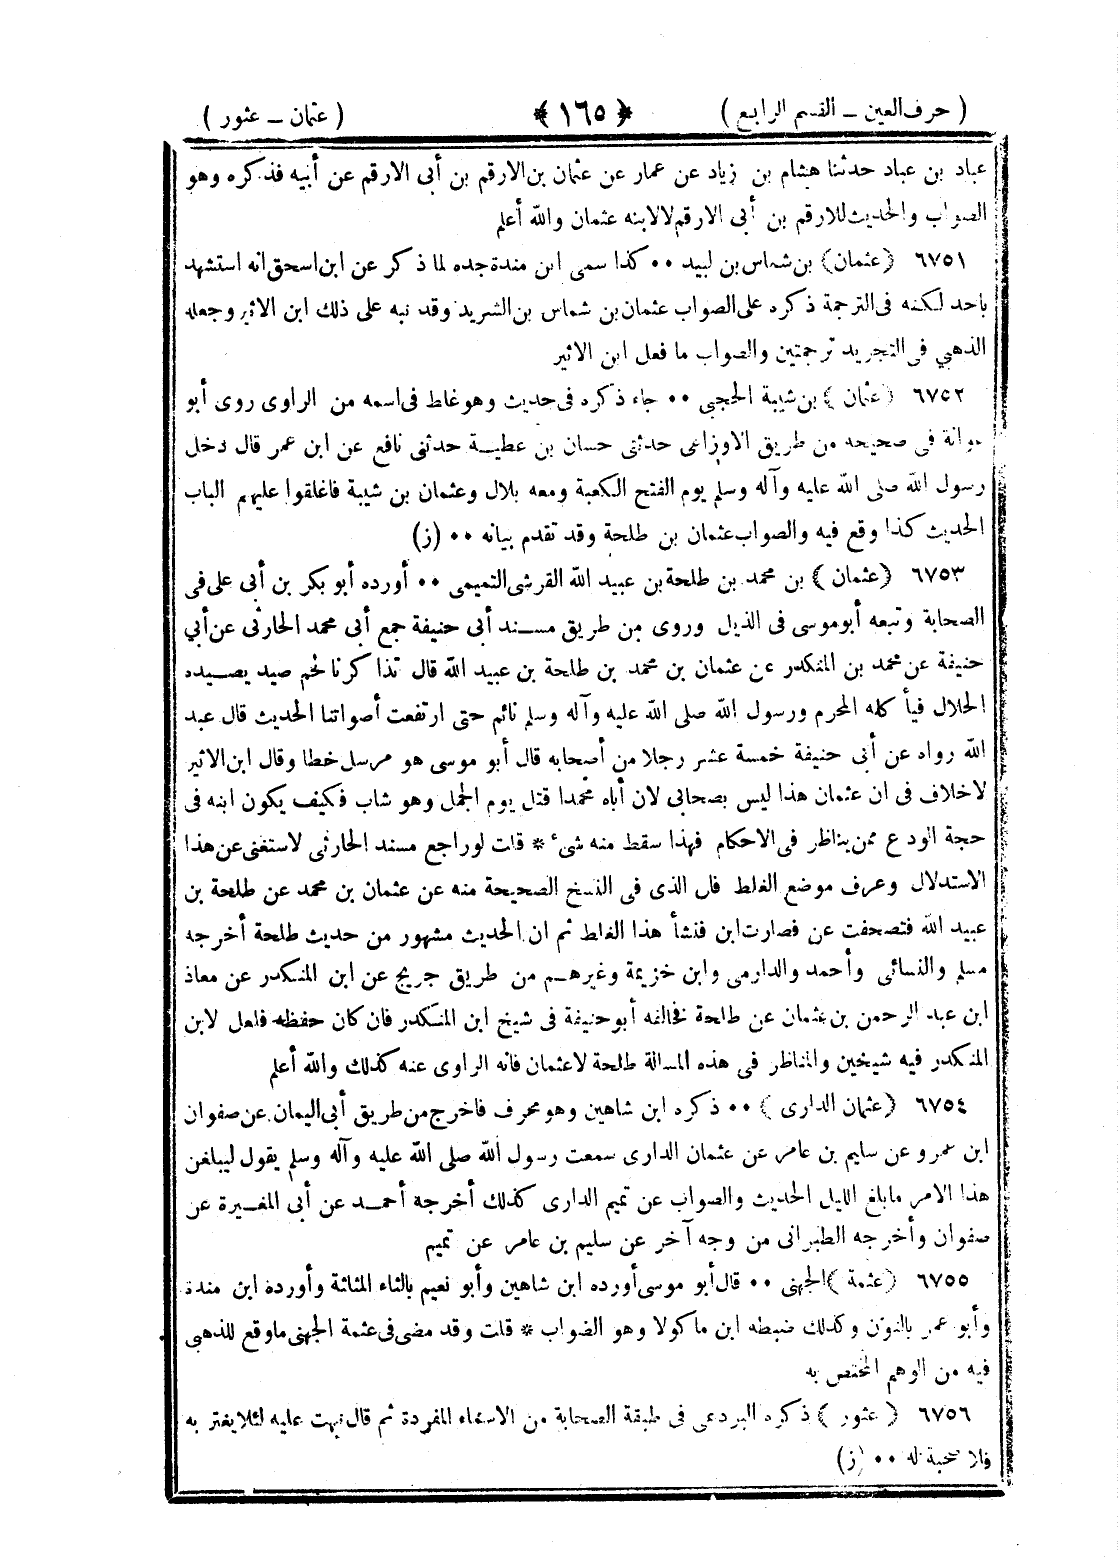 ( حرف العين ــ القسم الرابع ) ﴿ ١٦٥ ﴾ ( عثمان ــ عثور )
عباد بن عباد حدثنا هشام بن زياد عن عمار عن عثمان بن الارقم بن أبى الارقم عن أبيه فذكره وهو
الصواب والحديث للارقم بن أبى الارقم لالابنه عثمان والله أعلم
٦٧٥١ ﴿عثمان﴾ بن شماس بن لبيد ٠٠ كذا سمى ابن مندة جده لما ذكر عن ابن اسحق انه استشهد
باحد لكنه فى الترجمة ذكره على الصواب عثمان بن شماس بن الشريد وقد نبه على ذلك ابن الاثير وجعله
الذهبي فى التجريد ترجمتين والصواب ما فعل ابن الاثير
٦٧٥٢ ﴿عثمان﴾ بن شيبة الحجبى ٠٠ جاء ذكره فى حديث وهو غلط فى اسمه من الراوى روى أبو
عوانة فى صحيحه من طريق الاوزاعى حدثنى حسان بن عطيــة حدثنى نافع عن ابن عمر قال دخل
رسول الله صلى الله عليه وآله وسلم يوم الفتح الكعبة ومعه بلال وعثمان بن شيبة فاغلقوا عليهم الباب
الحديث كذا وقع فيه والصواب عثمان بن طلحة وقد تقدم بيانه ٠٠ (ز)
٦٧٥٣ ﴿عثمان﴾ بن محمد بن طلحة بن عبيد الله القرشى التميمى ٠٠ أورده أبو بكر بن أبى على فى
الصحابة وتبعه أبوموسى فى الذيل وروى من طريق مســند أبى حنيفة جمع أبى محمد الحارثى عن أبي
حنيفة عن محمد بن المنكدر عن عثمان بن محمد بن طلحة بن عبيد الله قال تذاكرنا لحم صيد يصــيده
الحلال فيأكله المحرم ورسول الله صلى الله عليه وآله وسلم نائم حتى ارتفعت أصواتنا الحديث قال عبد
الله رواه عن أبى حنيفة خمسة عشر رجلا من أصحابه قال أبو موسى هو مرسل خطا وقال ابن الاثير
لاخلاف فى ان عثمان هذا ليس بصحابى لان أباه محمدا قتل يوم الجمل وهو شاب فكيف يكون ابنه فى
حجة الودع ممن يناظر فى الاحكام فهذا سقط منه شئ * قلت لوراجع مسند الحارثى لاستغنى عن هذا
الاستدلال وعرف موضع الغلط فان الذى فى النسخ الصحيحة منه عن عثمان بن محمد عن طلحة بن
عبيد الله فتصحفت عن فصارت ابن فنشأ هذا الغلط ثم ان الحديث مشهور من حديث طلحة أخرجه
مسلم والنسائى وأحمد والدارمى وابن خزيمة وغيرهــم من طريق جريج عن ابن المنكدر عن معاذ
ابن عبد الرحمن بن عثمان عن طلحة فخالفه أبوحنيفة فى شيخ ابن المنكدر فان كان حفظه فلعل لابن
المنكدر فيه شيخين والمناظر فى هذه المسالة طلحة لاعثمان فانه الراوى عنه كذلك والله أعلم
٦٧٥٤ ﴿عثمان الدارى﴾ ٠٠ ذكره ابن شاهين وهو محرف فاخرج من طريق أبى اليمان عن صفوان
ابن عمرو عن سليم بن عامر عن عثمان الدارى سمعت رسول الله صلى الله عليه وآله وسلم يقول ليبلغن
هذا الامر مابلغ الليل الحديث والصواب عن تميم الدارى كذلك أخرجه أحمــد عن أبى المغــيرة عن
صفوان وأخرجه الطبرانى من وجه آخر عن سليم بن عامر عن تميم
٦٧٥٥ ﴿عثمة﴾ الجهنى ٠٠ قال أبو موسى أورده ابن شاهين وأبو نعيم بالثاء المثلثة وأورده ابن مندة
وأبو عمر بالنون وكذلك ضبطه ابن ماكولا وهو الصواب * قلت وقد مضى فى عثمة الجهنى ماوقع للذهبى
فيه من الوهم المختص به
٦٧٥٦ ﴿عثور﴾ ذكره البردعى فى طبقة الصحابة من الاسماء المفردة ثم قال نبهت عليه لئلا يغتر به
فلا صحبة له ٠٠ (ز)